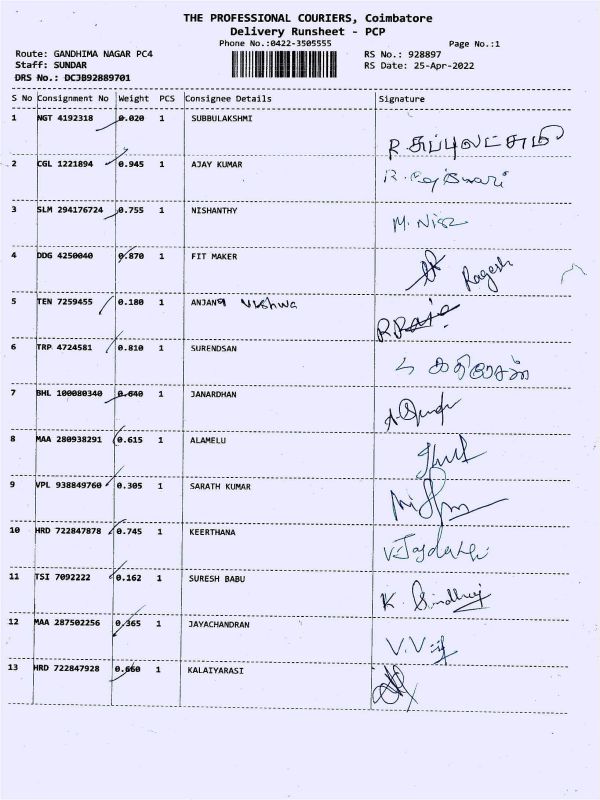 THE PROFESSIONAL COURIERS, Coimbatore
Delivery Runsheet - PCP
Phone No.:0422-3505555 Page No.:1
Route: GANDHIMA NAGAR PC4 RS No.: 928897
Staff: SUNDAR RS Date: 25-Apr-2022
DRS No.: DCJB92889701
S No Consignment No Weight PCS Consignee Details Signature
1 NGT 4192318 0.020 1 SUBBULAKSHMI
R. சுப்புலட்சுமி
2 CGL 1221894 0.945 1 AJAY KUMAR
R. Rajeswari
3 SLM 294176724 0.755 1 NISHANTHY
M. Nisz
4 DDG 4250040 0.870 1 FIT MAKER
Ragesh
5 TEN 7259455 0.180 1 ANJANA Vishwa
6 TRP 4724581 0.810 1 SURENDSAN
7 BHL 100080340 0.640 1 JANARDHAN
8 MAA 280938291 0.615 1 ALAMELU
9 VPL 938849760 0.305 1 SARATH KUMAR
10 HRD 722847878 0.745 1 KEERTHANA
11 TSI 7092222 0.162 1 SURESH BABU
K. Sindhuj
12 MAA 287502256 0.365 1 JAYACHANDRAN
13 HRD 722847928 0.660 1 KALAIYARASI